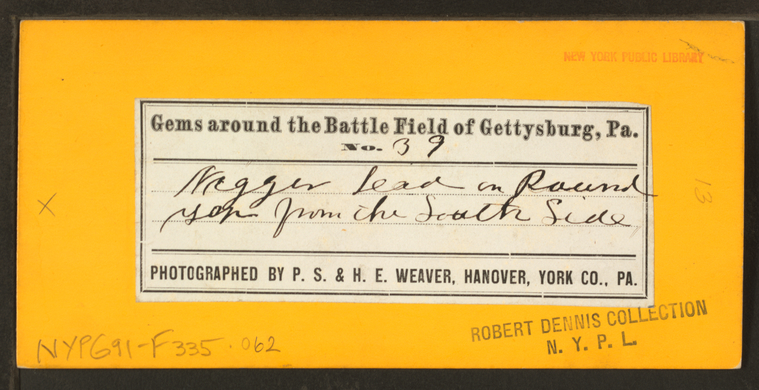 NEW YORK PUBLIC LIBRARY
Gems around the Battle Field of Gettysburg, Pa.
No. 39
Negger head on Round
Top from the South Side
PHOTOGRAPHED BY P. S. & H. E. WEAVER, HANOVER, YORK CO., PA.
X
13
ROBERT DENNIS COLLECTION
N. Y. P. L.
NYPG91-F335.062